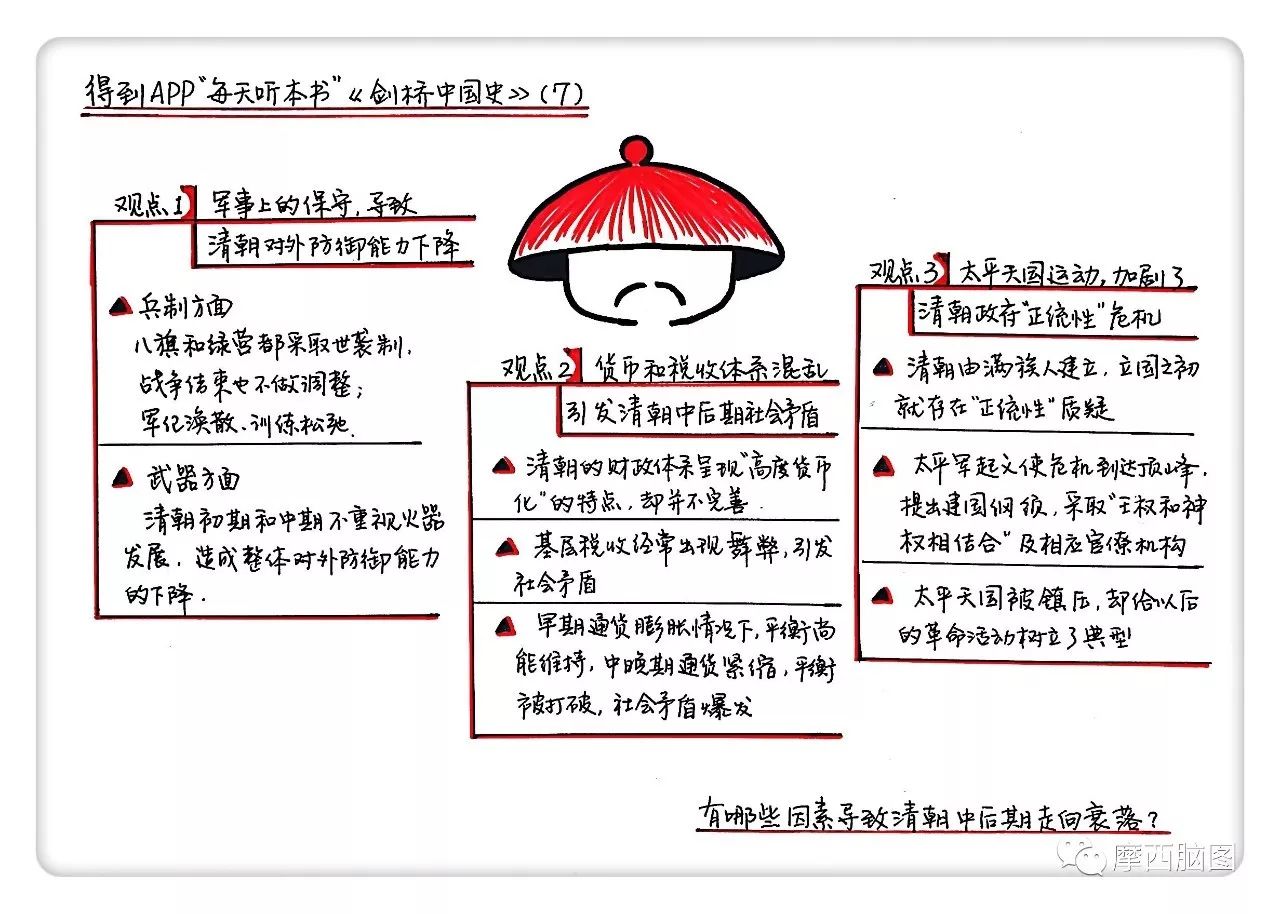 得到APP“每天听本书”《剑桥中国史》(7)
观点1 军事上的保守,导致
清朝对外防御能力下降
▲ 兵制方面
八旗和绿营都采取世袭制,
战争结束也不做调整;
军纪涣散、训练松弛.
▲ 武器方面
清朝初期和中期不重视火器
发展,造成整体对外防御能力
的下降.
观点2 货币和税收体系混乱
引发清朝中后期社会矛盾
▲ 清朝的财政体系呈现“高度货币
化”的特点,却并不完善.
▲ 基层税收经常出现舞弊,引发
社会矛盾
▲ 早期通货膨胀情况下,平衡尚
能维持,中晚期通货紧缩,平衡
被打破,社会矛盾爆发
观点3 太平天国运动,加剧了
清朝政府“正统性”危机
▲ 清朝由满族人建立,立国之初
就存在“正统性”质疑
▲ 太平军起义使危机到达顶峰,
提出建国纲领,采取“王权和神
权相结合”及相应官僚机构
▲ 太平天国被镇压,却给以后
的革命活动树立了典型
有哪些因素导致清朝中后期走向衰落?
摩西脑图